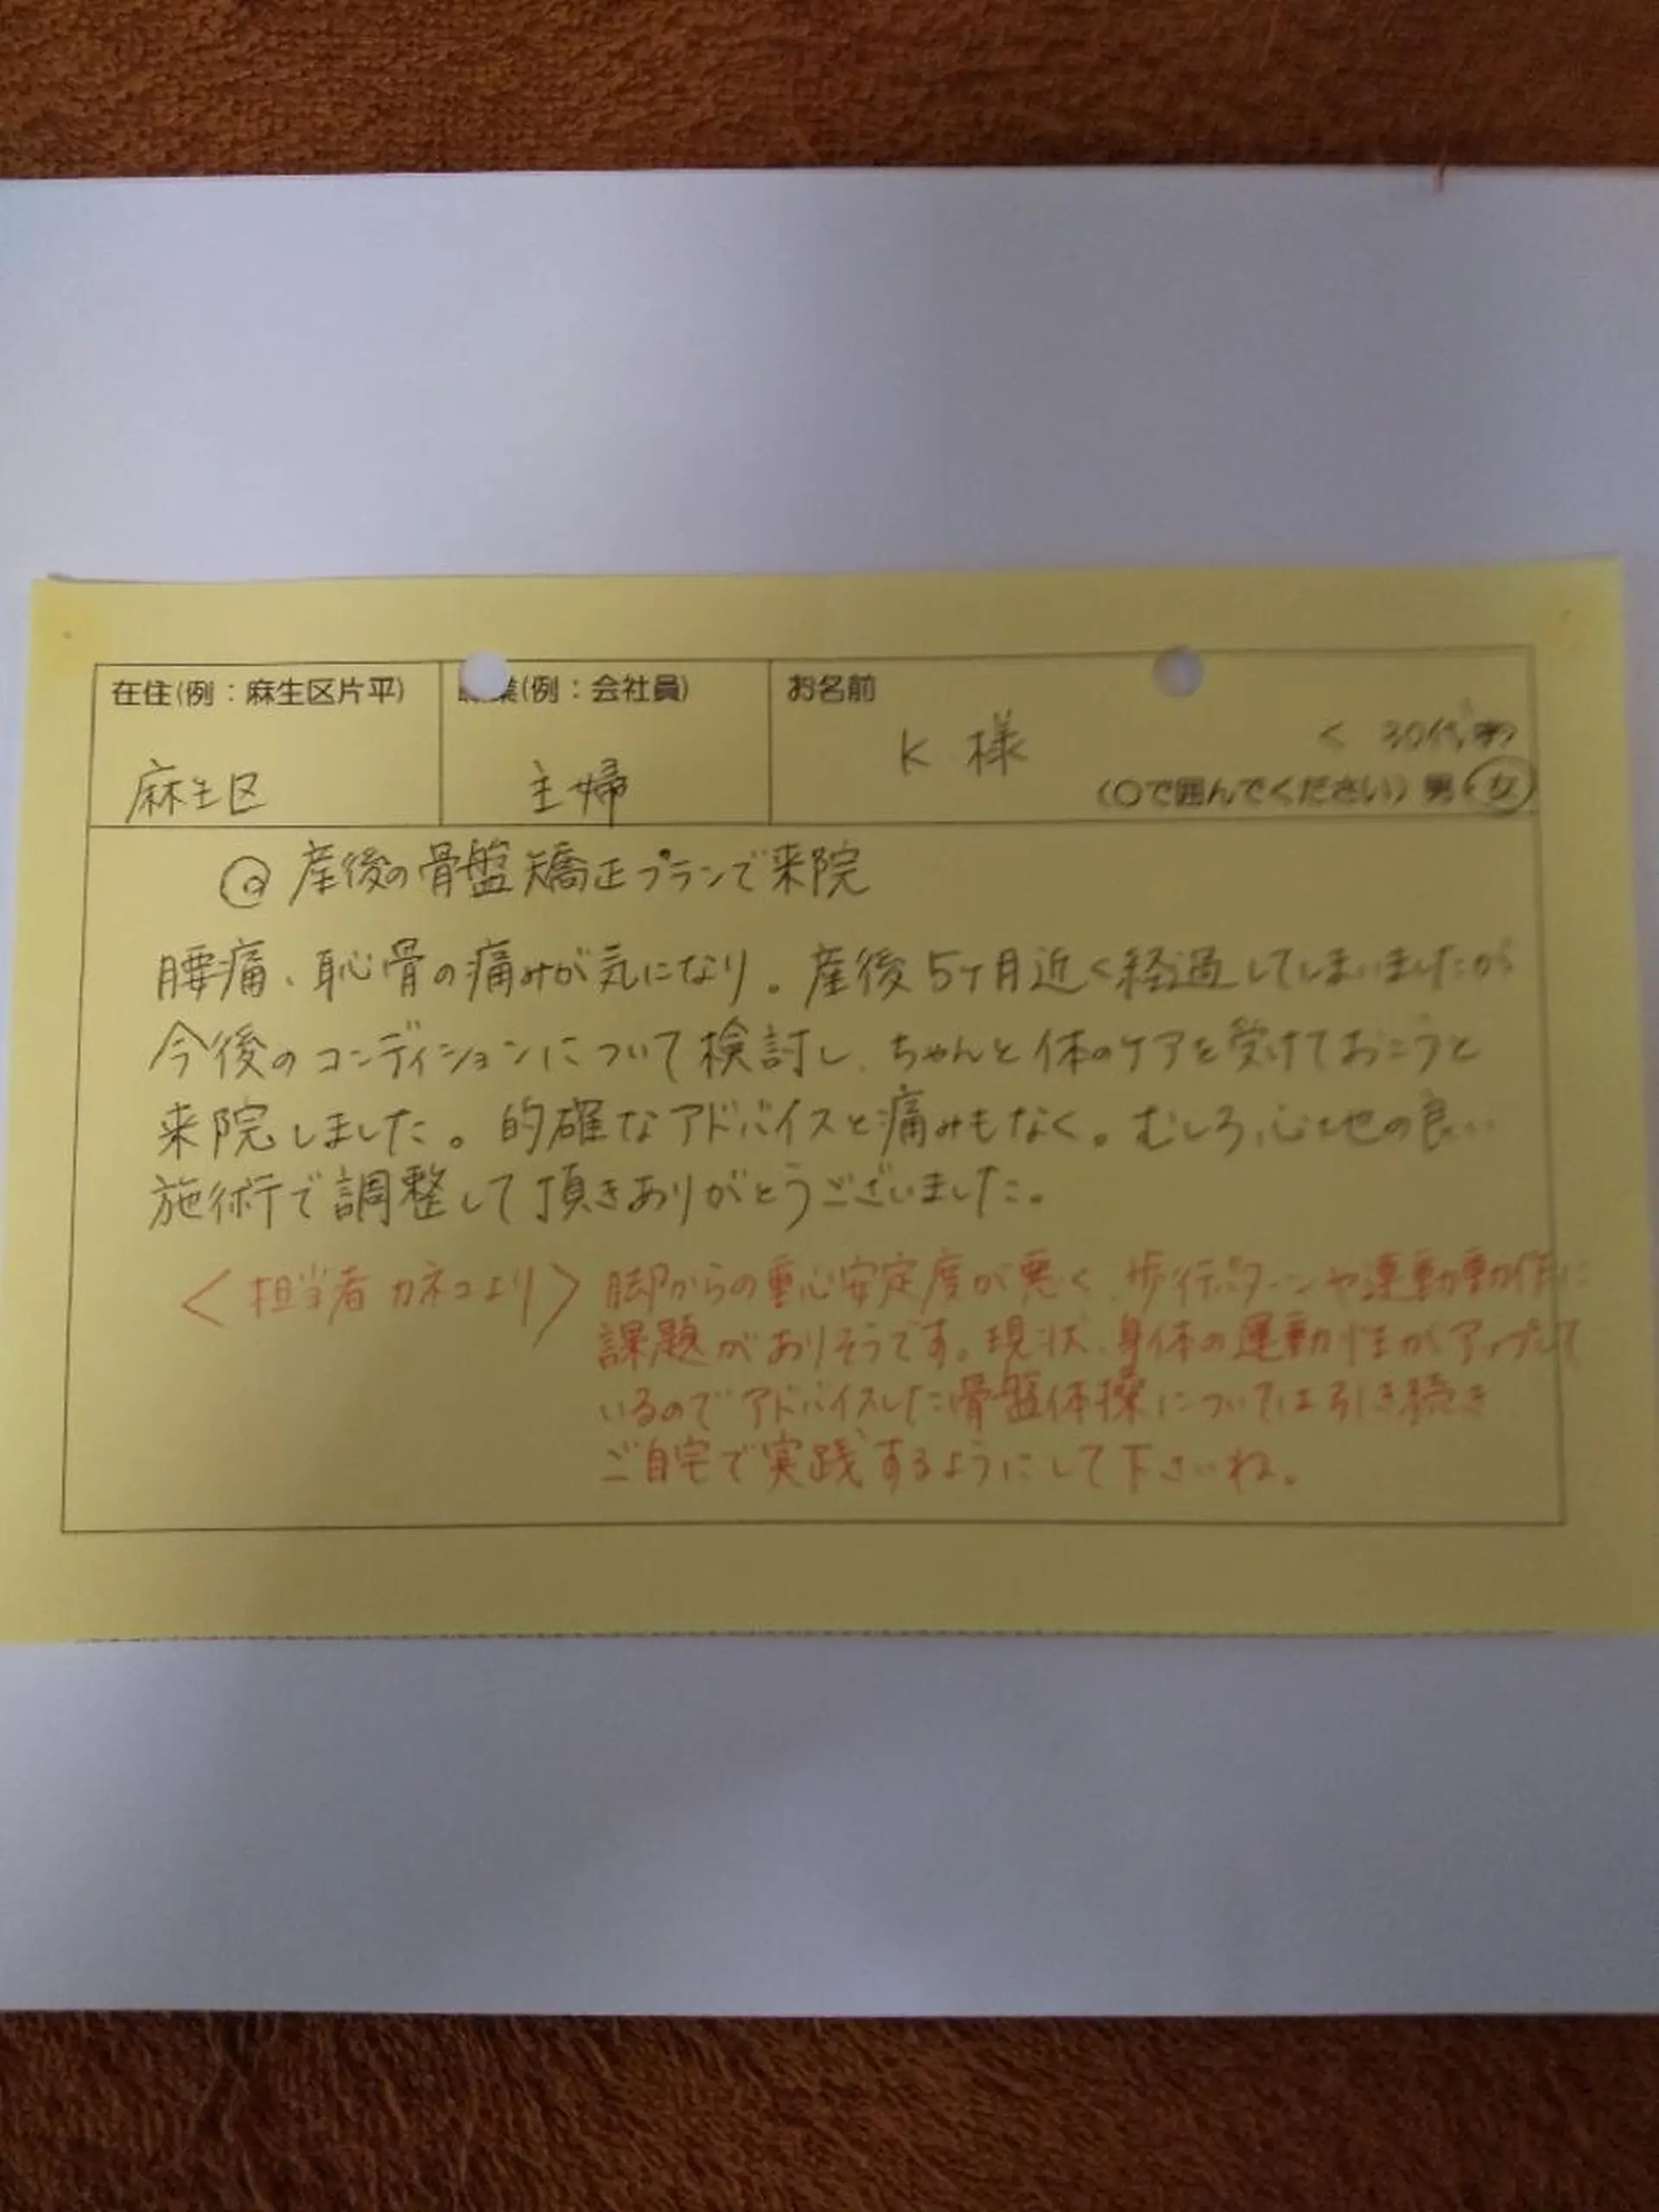 在住(例：麻生区片平)
麻生区
業(例：会社員)
主婦
お名前
K 様
30代
(○で囲んでください) 男・女
◎ 産後の骨盤矯正プランで来院
腰痛、恥骨の痛みが気になり。産後5ヶ月近く経過してしまいましたが
今後のコンディションについて検討し、ちゃんと体のケアを受けておこうと
来院しました。的確なアドバイスと痛みもなく。むしろ、心地の良い
施術で調整して頂きありがとうございました。
<担当者 カネコより> 脚からの重心安定度が悪く、歩行パターンや運動動作に
課題がありそうです。現状、身体の運動性がアップして
いるのでアドバイスした骨盤体操については引き続き
ご自宅で実践するようにして下さいね。